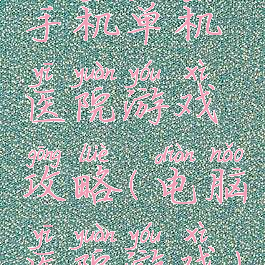 手机单机
yī yuàn yóu xì
医院游戏
gōng lüè diàn nǎo
攻略(电脑
yī yuàn yóu xì
医院游戏)